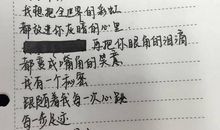 我想把全世界的彩虹
都放进你灰暗的心里
再把你眼角的泪滴
都变成嘴角的笑意
我有一个秘密
跟随着我每一次心跳
每一步足迹